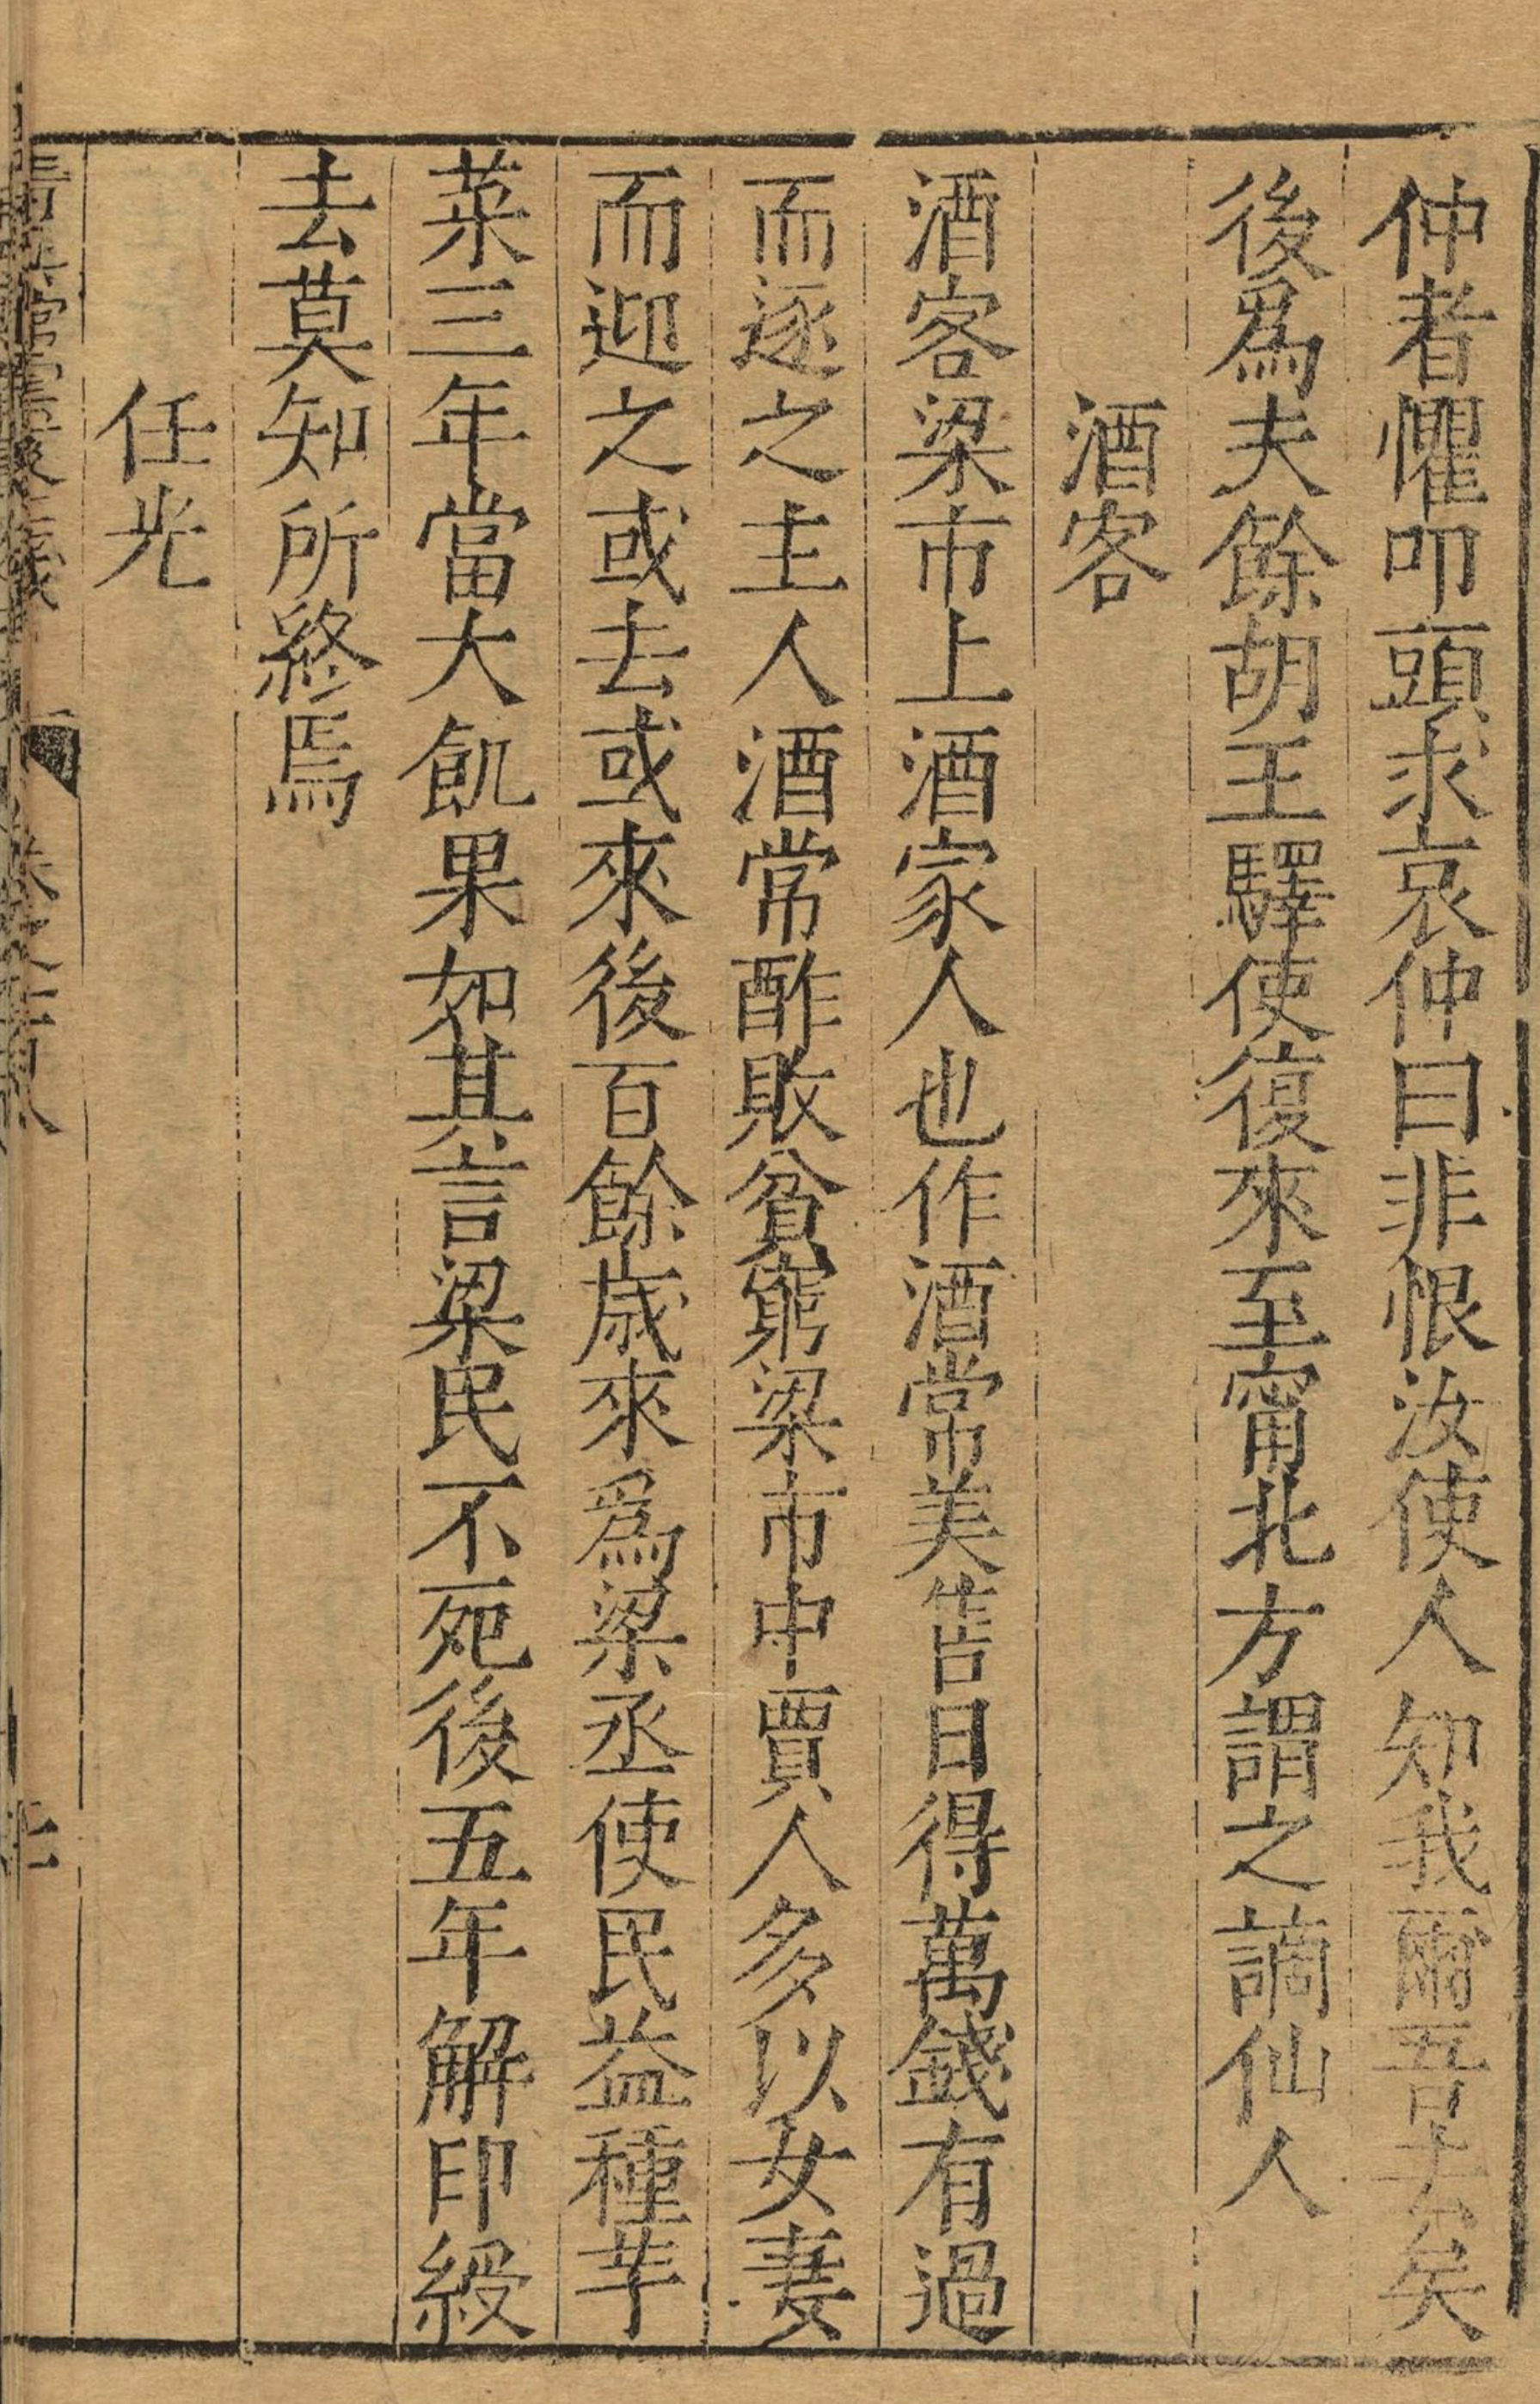 仲者懼叩頭求哀仲曰非恨汝使人知我爾吾去矣
後爲夫餘胡王驛使復來至甯北方謂之謫仙人
酒客
酒客梁市上酒家人也作酒常美售日得萬錢有過
而逐之主人酒常酢敗貧窮梁市中賈人多以女妻
而迎之或去或來後百餘歲來爲梁丞使民益種芋
菜三年當大飢果如其言梁民不死後五年解印綬
去莫知所終焉
任光